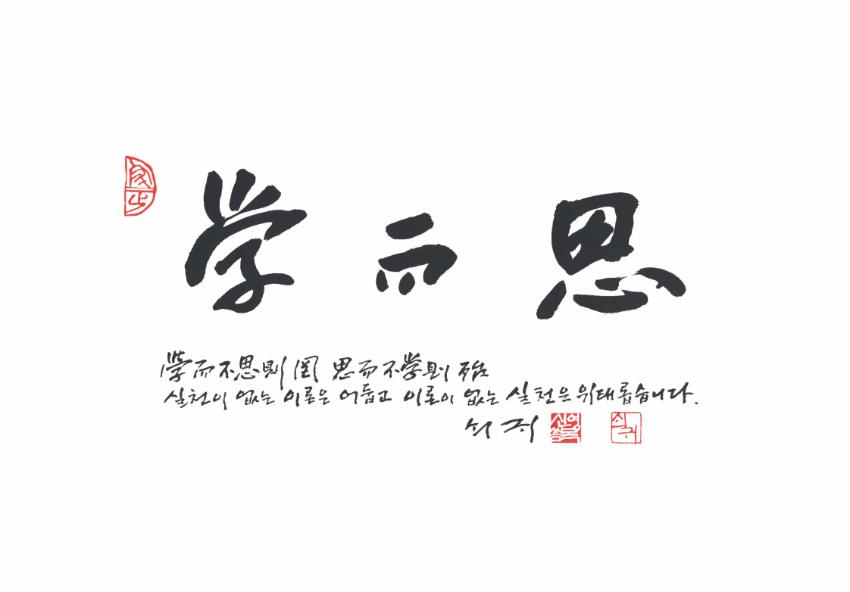 学而思
學而不思則罔 思而不學則殆
실천이 없는 이론은 어둡고 이론이 없는 실천은 위태롭습니다.
쇠귀